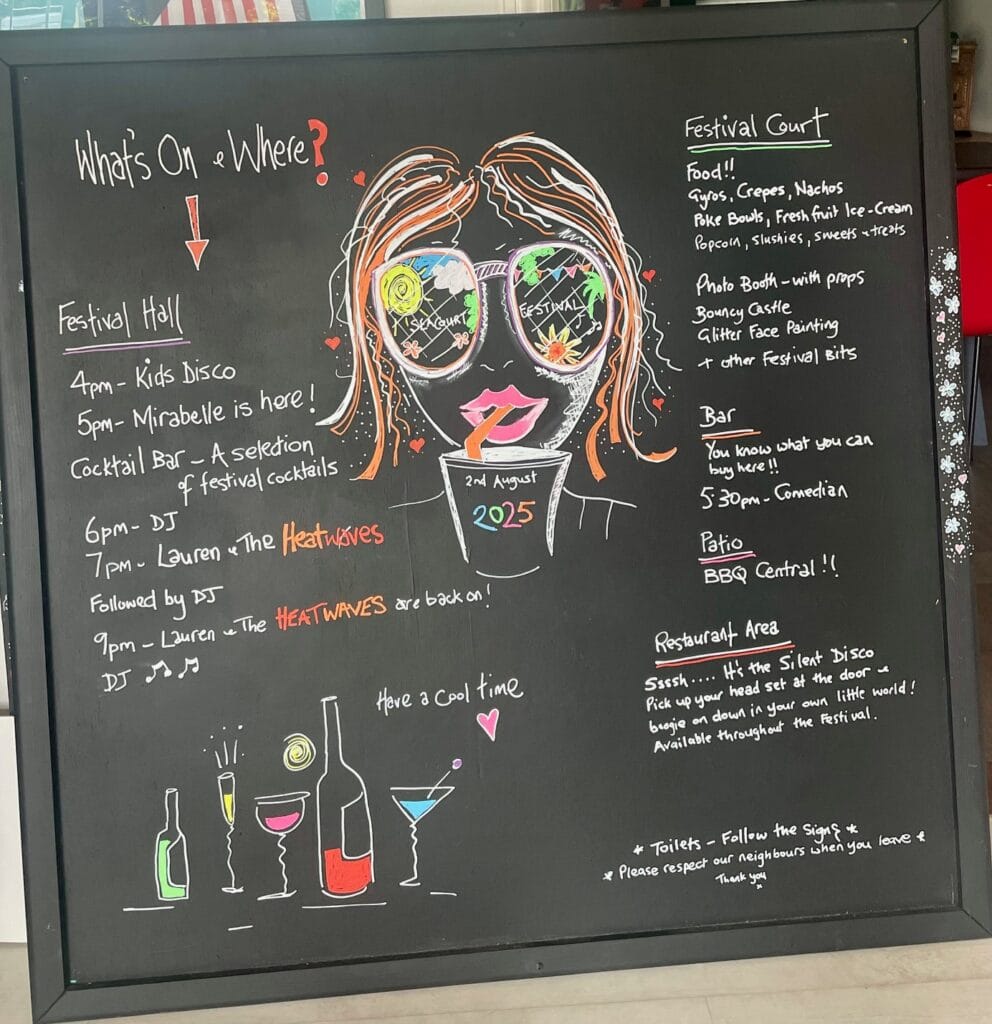 What's On & Where?
Festival Hall
4pm - Kids Disco
5pm - Mirabelle is here!
Cocktail Bar - A selection
of festival cocktails
6pm - DJ
7pm - Lauren & The Heatwaves
Followed by DJ
9pm - Lauren & The HEATWAVES are back on!
DJ
Have a cool time
SEACOURT
FESTIVAL
2nd August
2025
Festival Court
Food!!
Gyros, Crepes, Nachos
Poke Bowls, Fresh fruit Ice-Cream
Popcoin, slushies, sweets & treats
Photo Booth - with props
Bouncy Castle
Glitter Face Painting
+ other Festival Bits
Bar
You know what you can
buy here!!
5:30pm - Comedian
Patio
BBQ Central!!
Restaurant Area
Ssssh.... It's the Silent Disco
Pick up your head set at the door &
boogie on down in your own little world!
Available throughout the Festival.
* Toilets - Follow the Signs *
* Please respect our neighbours when you leave *
Thank you
x